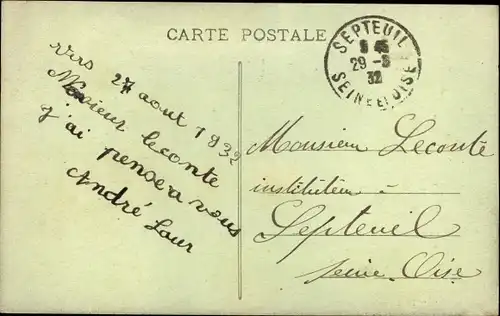 CARTE POSTALE
SEPTEUIL
29 - 8
32
SEINE ET OISE
Vers 27 aout 1932
Monsieur leconte
j'ai penser a vous
André Laur
Monsieur Leconte
instituteur à
Septeuil
Seine-Oise